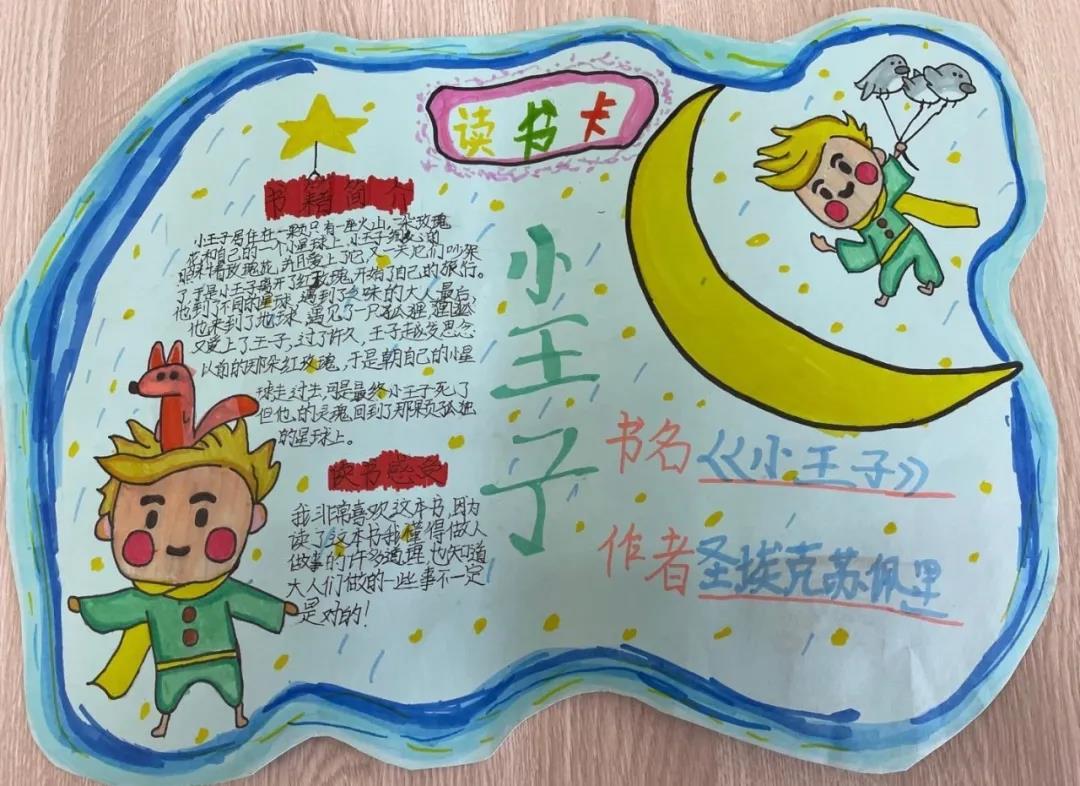 读书卡
书籍简介
小王子居住在一颗只有一座火山,一朵玫瑰
花和自己的一个小星球上,小王子细心的
照料着玫瑰花,并且爱上了它,又一天他们吵架
了于是小王子离开了红玫瑰,开始了自己的旅行。
他到了不同的星球,遇到了乏味的大人最后,
他来到了地球,遇见了一只狐狸,狐狸
又爱上了王子,过了许久,王子越发思念
以前的那朵红玫瑰,于是朝自己的小星
球走过去,可是最终小王子死了
但他的灵魂回到了那颗孤独
的星球上。
读书感受
我非常喜欢这本书,因为
读了这本书我懂得做人
做事的许多道理,也知道
大人们做的一些事不一定
是对的!
小王子
书名《小王子》
作者圣埃克苏佩里